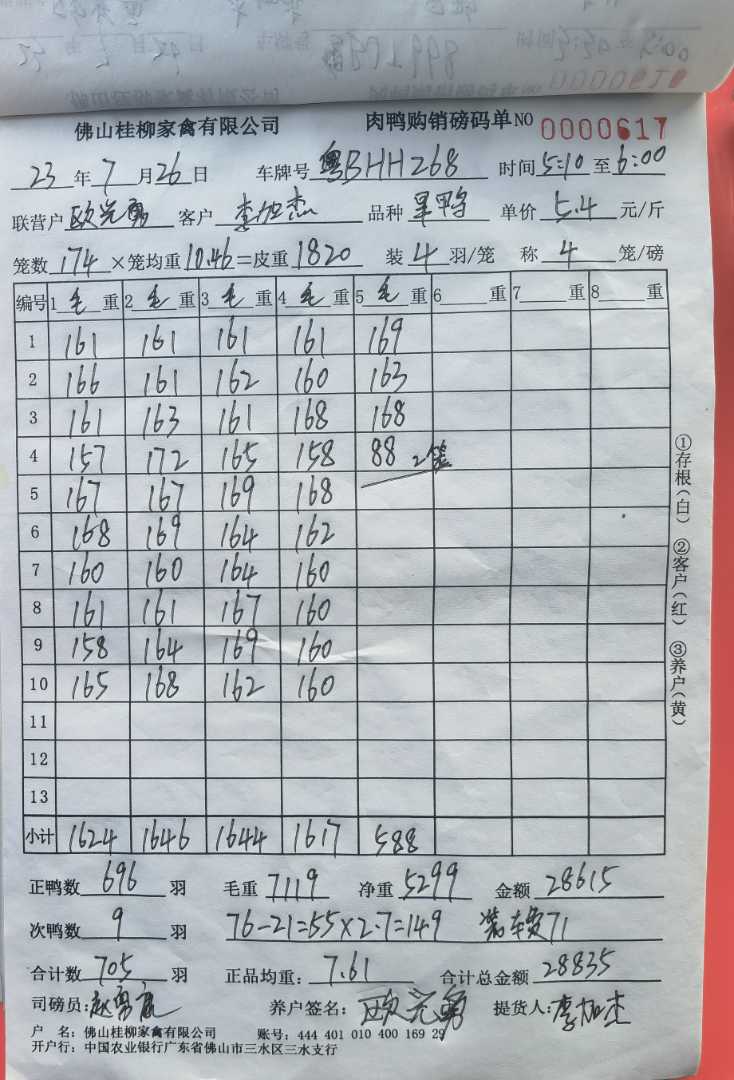 佛山桂柳家禽有限公司 肉鸭购销磅码单NO 0000617
23年7月26日 车牌号 粤BHH268 时间5:10至6:00
联营户 欧兴勇 客户 李加杰 品种 旱鸭 单价 5.4 元/斤
笼数 174 ×笼均重 10.46 =皮重 1820 装 4 羽/笼 称 4 笼/磅
编号 1毛重 2毛重 3毛重 4毛重 5毛重 6重 7重 8重
1 161 161 161 161 169
2 166 161 162 160 163
3 161 163 161 168 168
4 157 172 165 158 88 2笼
5 167 167 169 168
6 168 169 164 162
7 160 160 164 160
8 161 161 167 160
9 158 164 169 160
10 165 168 162 160
11
12
13
小计 1624 1646 1644 1617 588
①存根(白) ②客户(红) ③养户(黄)
正鸭数 696 羽 毛重 7119 净重 5299 金额 28615
次鸭数 9 羽 76-21=55×2.7=149 装车费71
合计数 705 羽 正品均重: 7.61 合计总金额 28835
司磅员: 养户签名: 欧兴勇 提货人: 李加杰
户 名: 佛山桂柳家禽有限公司 账号: 444 401 010 400 169 29
开户行: 中国农业银行广东省佛山市三水区三水支行